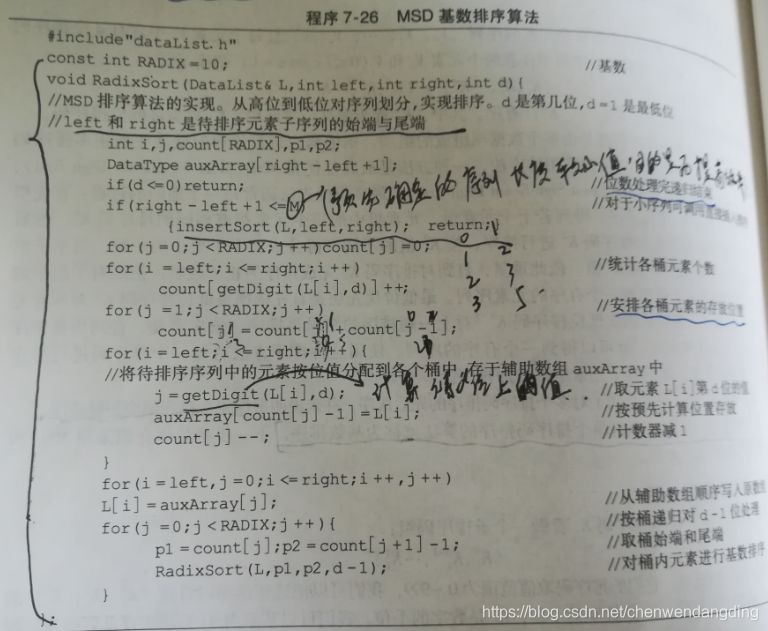 程序 7-26 MSD 基数排序算法
#include"dataList.h"
const int RADIX=10; //基数
void RadixSort(DataList& L,int left,int right,int d){
//MSD 排序算法的实现。从高位到低位对序列划分,实现排序。d 是第几位,d=1 是最低位
//left 和 right 是待排序元素子序列的始端与尾端
int i,j,count[RADIX],p1,p2;
DataType auxArray[right-left+1];
if(d<=0)return; //位数处理完递归结束
if(right-left+1<=M) 预先确定的序列长度 //对于小序列可调用直接插入
{insertSort(L,left,right); return;}
for(j=0;j<RADIX;j++)count[j]=0;
0
1 2
2 3
3 5
for(i=left;i<=right;i++) //统计各桶元素个数
count[getDigit(L[i],d)]++;
for(j=1;j<RADIX;j++) //安排各桶元素的存放位置
count[j]=count[j]+count[j-1];
for(i=left;i<=right;i++){
//将待排序序列中的元素按位值分配到各个桶中,存于辅助数组 auxArray 中
j=getDigit(L[i],d); 计算 位上的值. //取元素 L[i]第 d 位的值
auxArray[count[j]-1]=L[i]; //按预先计算位置存放
count[j]--; //计数器减 1
}
for(i=left,j=0;i<=right;i++,j++)
L[i]=auxArray[j]; //从辅助数组顺序写入原数组
for(j=0;j<RADIX;j++){ //按桶递归对 d-1 位处理
p1=count[j];p2=count[j+1]-1; //取桶始端和尾端
RadixSort(L,p1,p2,d-1); //对桶内元素进行基数排序
}
};
https://blog.csdn.net/chenwendangding